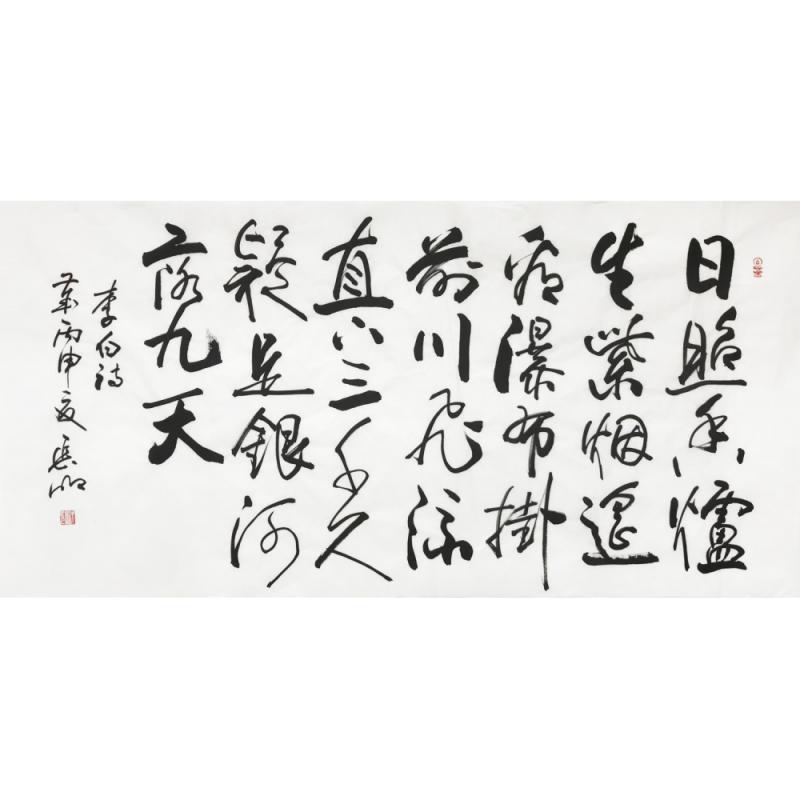 日照香爐
生紫烟遥
看瀑布掛
前川飛流
直下三千尺
疑是銀河
落九天
李白詩
歲丙申夏